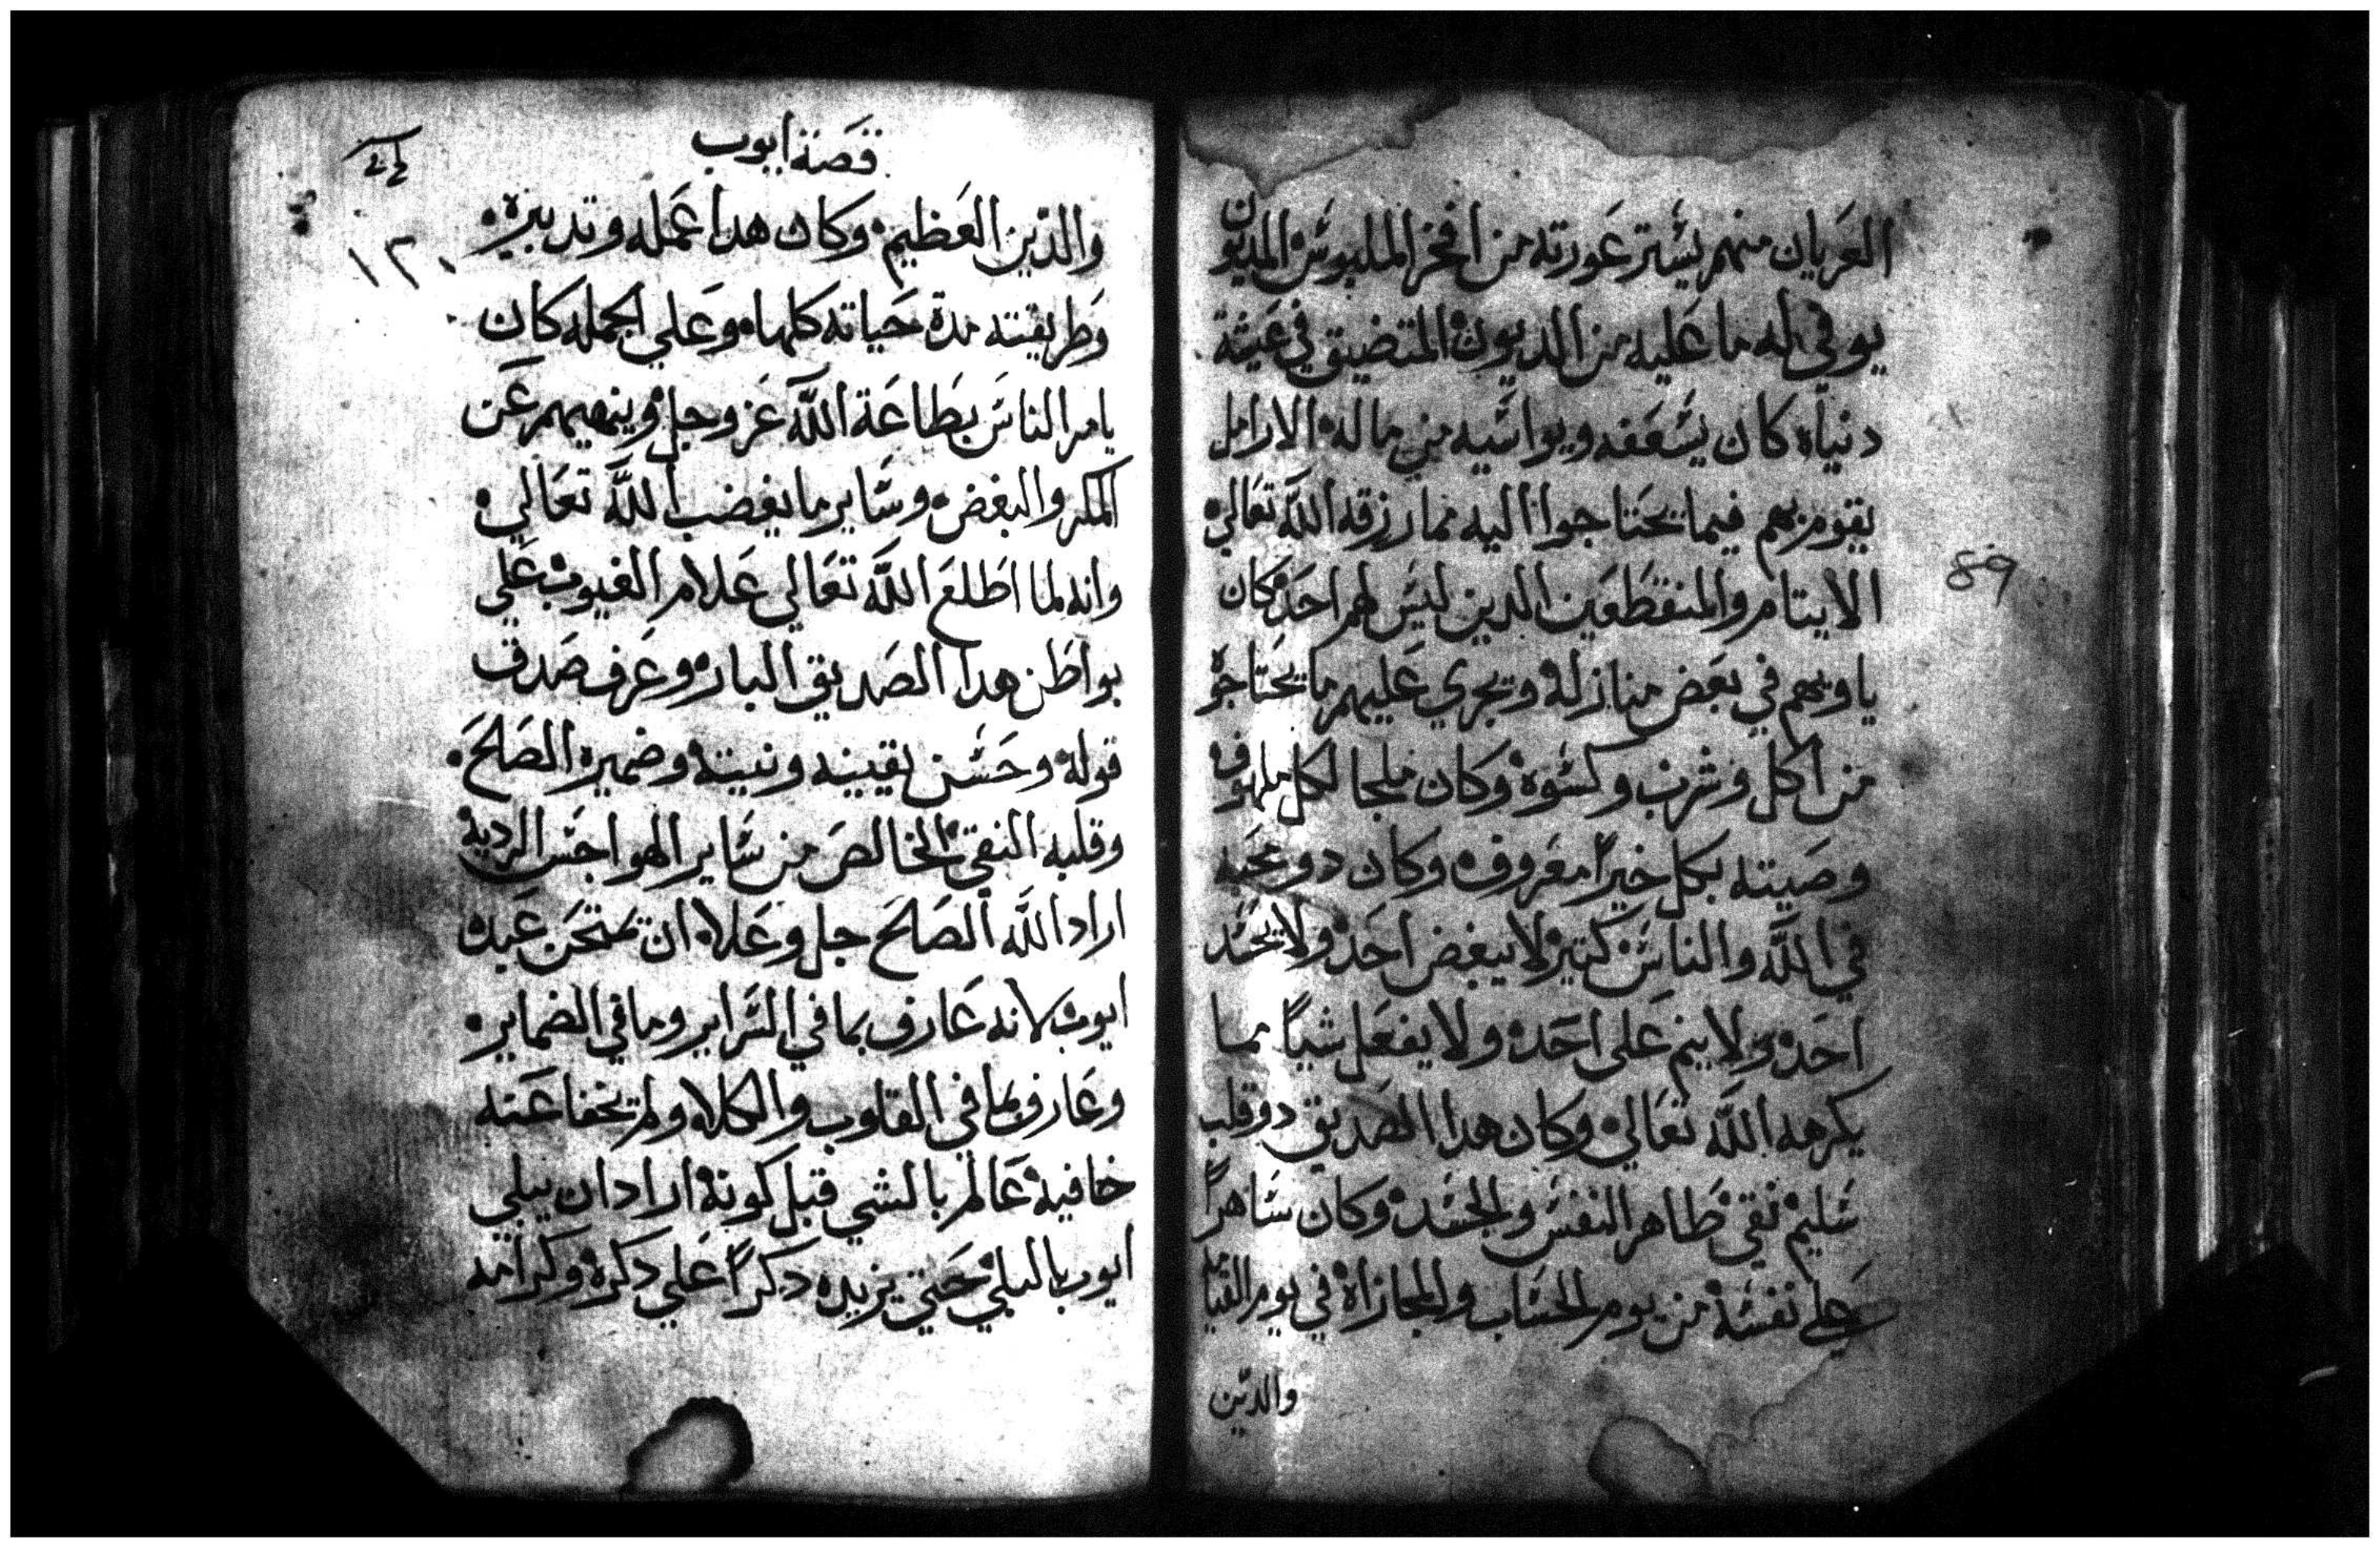 العريان منهم يستر عورته من افخر الملبوس المديون
يوفي له ما عليه من الديون المتضيق في عيشة
دنياه كان يسعفه ويواسيه من ماله الارامل
يقوم بهم فيما يحتاجوا اليه مما رزقه الله تعالي
الايتام والمنقطعين الدين ليس لهم احد كان
ياويهم في بعض منازله ويجري عليهم ما يحتاجو
من اكل وشرب وكسوة وكان ملجا لكل ملهوف
وصيته بكل خيراً معروف وكان دو محبه
في الله والناس كتير لا يبغض احد ولا يحسد
احد ولا ينم على احد ولا يفعل شياً مما
يكرهه الله تعالي وكان هدا الصديق دو قلب
سليم نقي طاهر النفس والجسد وكان ساهراً
علي نفسه من يوم الحساب والمجازاة في يوم القيامه
والدين
٨٩
قصة ايوب
١٢٠
والدين العظيم وكان هدا عمله وتدبيره
وطريقته مدة حياته كلها وعلي الجمله كان
يامر الناس بطاعة الله عز وجل وينهيهم عن
المكر والبغض وساير ما يغضب الله تعالي
وانه لما اطلع الله تعالي علام الغيوب علي
بواطن هدا الصديق البار وعرف صدق
قوله وحسن يقينه ونيته وضميره الصالح
وقلبه النقي الخالص من ساير الهواجس الرديه
اراد الله الصالح جل وعلا ان يمتحن عبده
ايوب لانه عارف بما في السراير وما في الضماير
وعارف بما في القلوب والكلاه ولم يخفا عنه
خافيه عالم بالشي قبل كونه اراد ان يبلي
ايوب بالبلي حتي يزيده دكراً علي دكره وكرامه